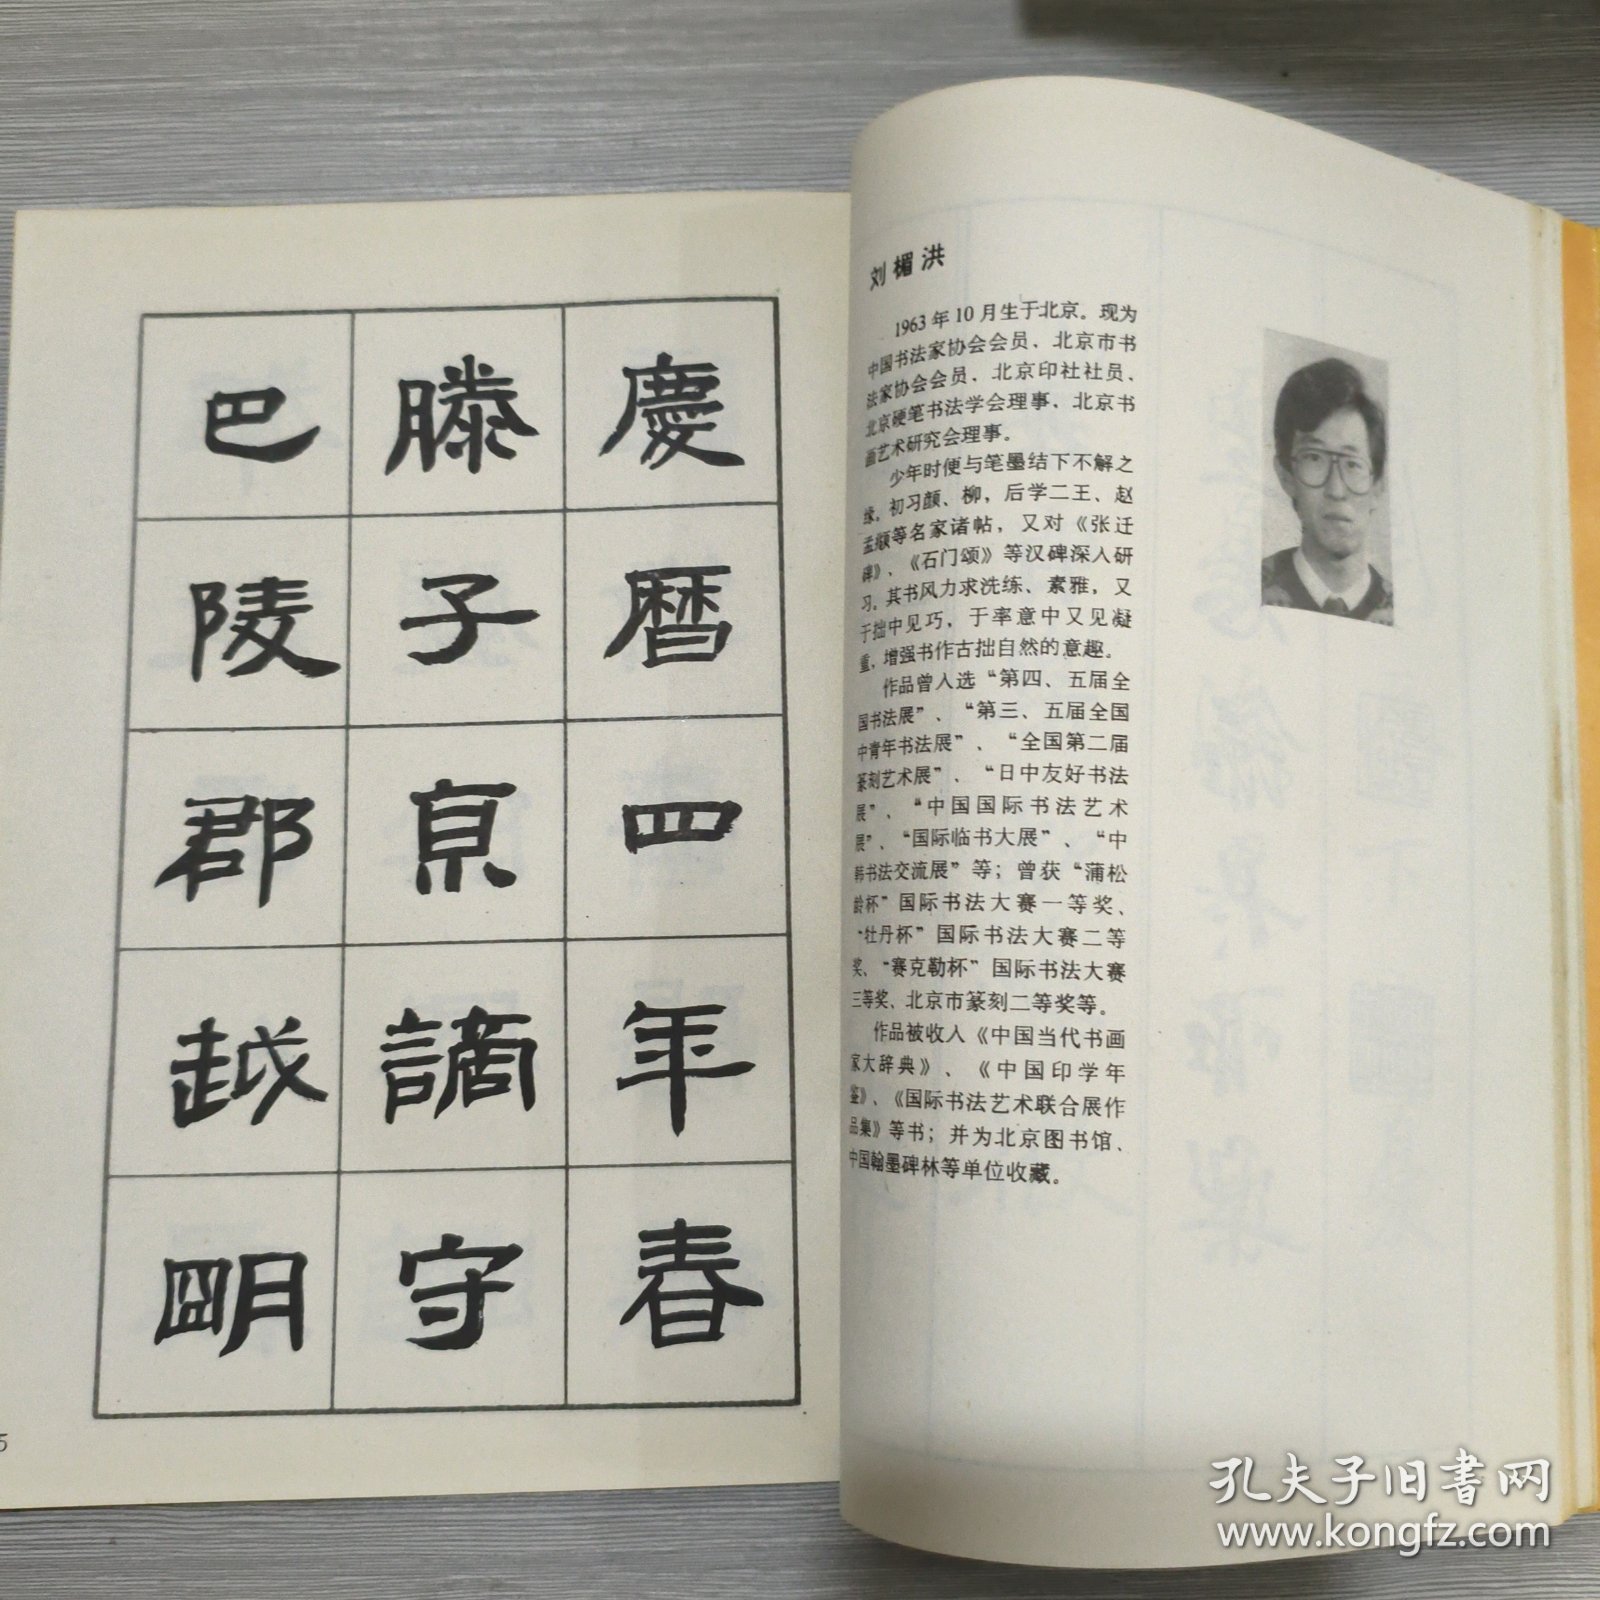 慶曆四年春
滕子京謫守
巴陵郡越明
5
刘楣洪
1963年10月生于北京。现为
中国书法家协会会员、北京市书
法家协会会员、北京印社社员、
北京硬笔书法学会理事、北京书
画艺术研究会理事。
少年时便与笔墨结下不解之
缘，初习颜、柳，后学二王、赵
孟頫等名家诸帖，又对《张迁
碑》、《石门颂》等汉碑深入研
习。其书风力求洗练、素雅，又
于拙中见巧，于率意中又见凝
重，增强书作古拙自然的意趣。
作品曾入选“第四、五届全
国书法展”、“第三、五届全国
中青年书法展”、“全国第二届
篆刻艺术展”、“日中友好书法
展”、“中国国际书法艺术
展”、“国际临书大展”、“中
韩书法交流展”等；曾获“蒲松
龄杯”国际书法大赛一等奖、
“牡丹杯”国际书法大赛二等
奖、“赛克勒杯”国际书法大赛
三等奖、北京市篆刻二等奖等。
作品被收入《中国当代书画
家大辞典》、《中国印学年
鉴》、《国际书法艺术联合展作
品集》等书；并为北京图书馆、
中国翰墨碑林等单位收藏。
孔夫子旧书网
www.kongfz.com